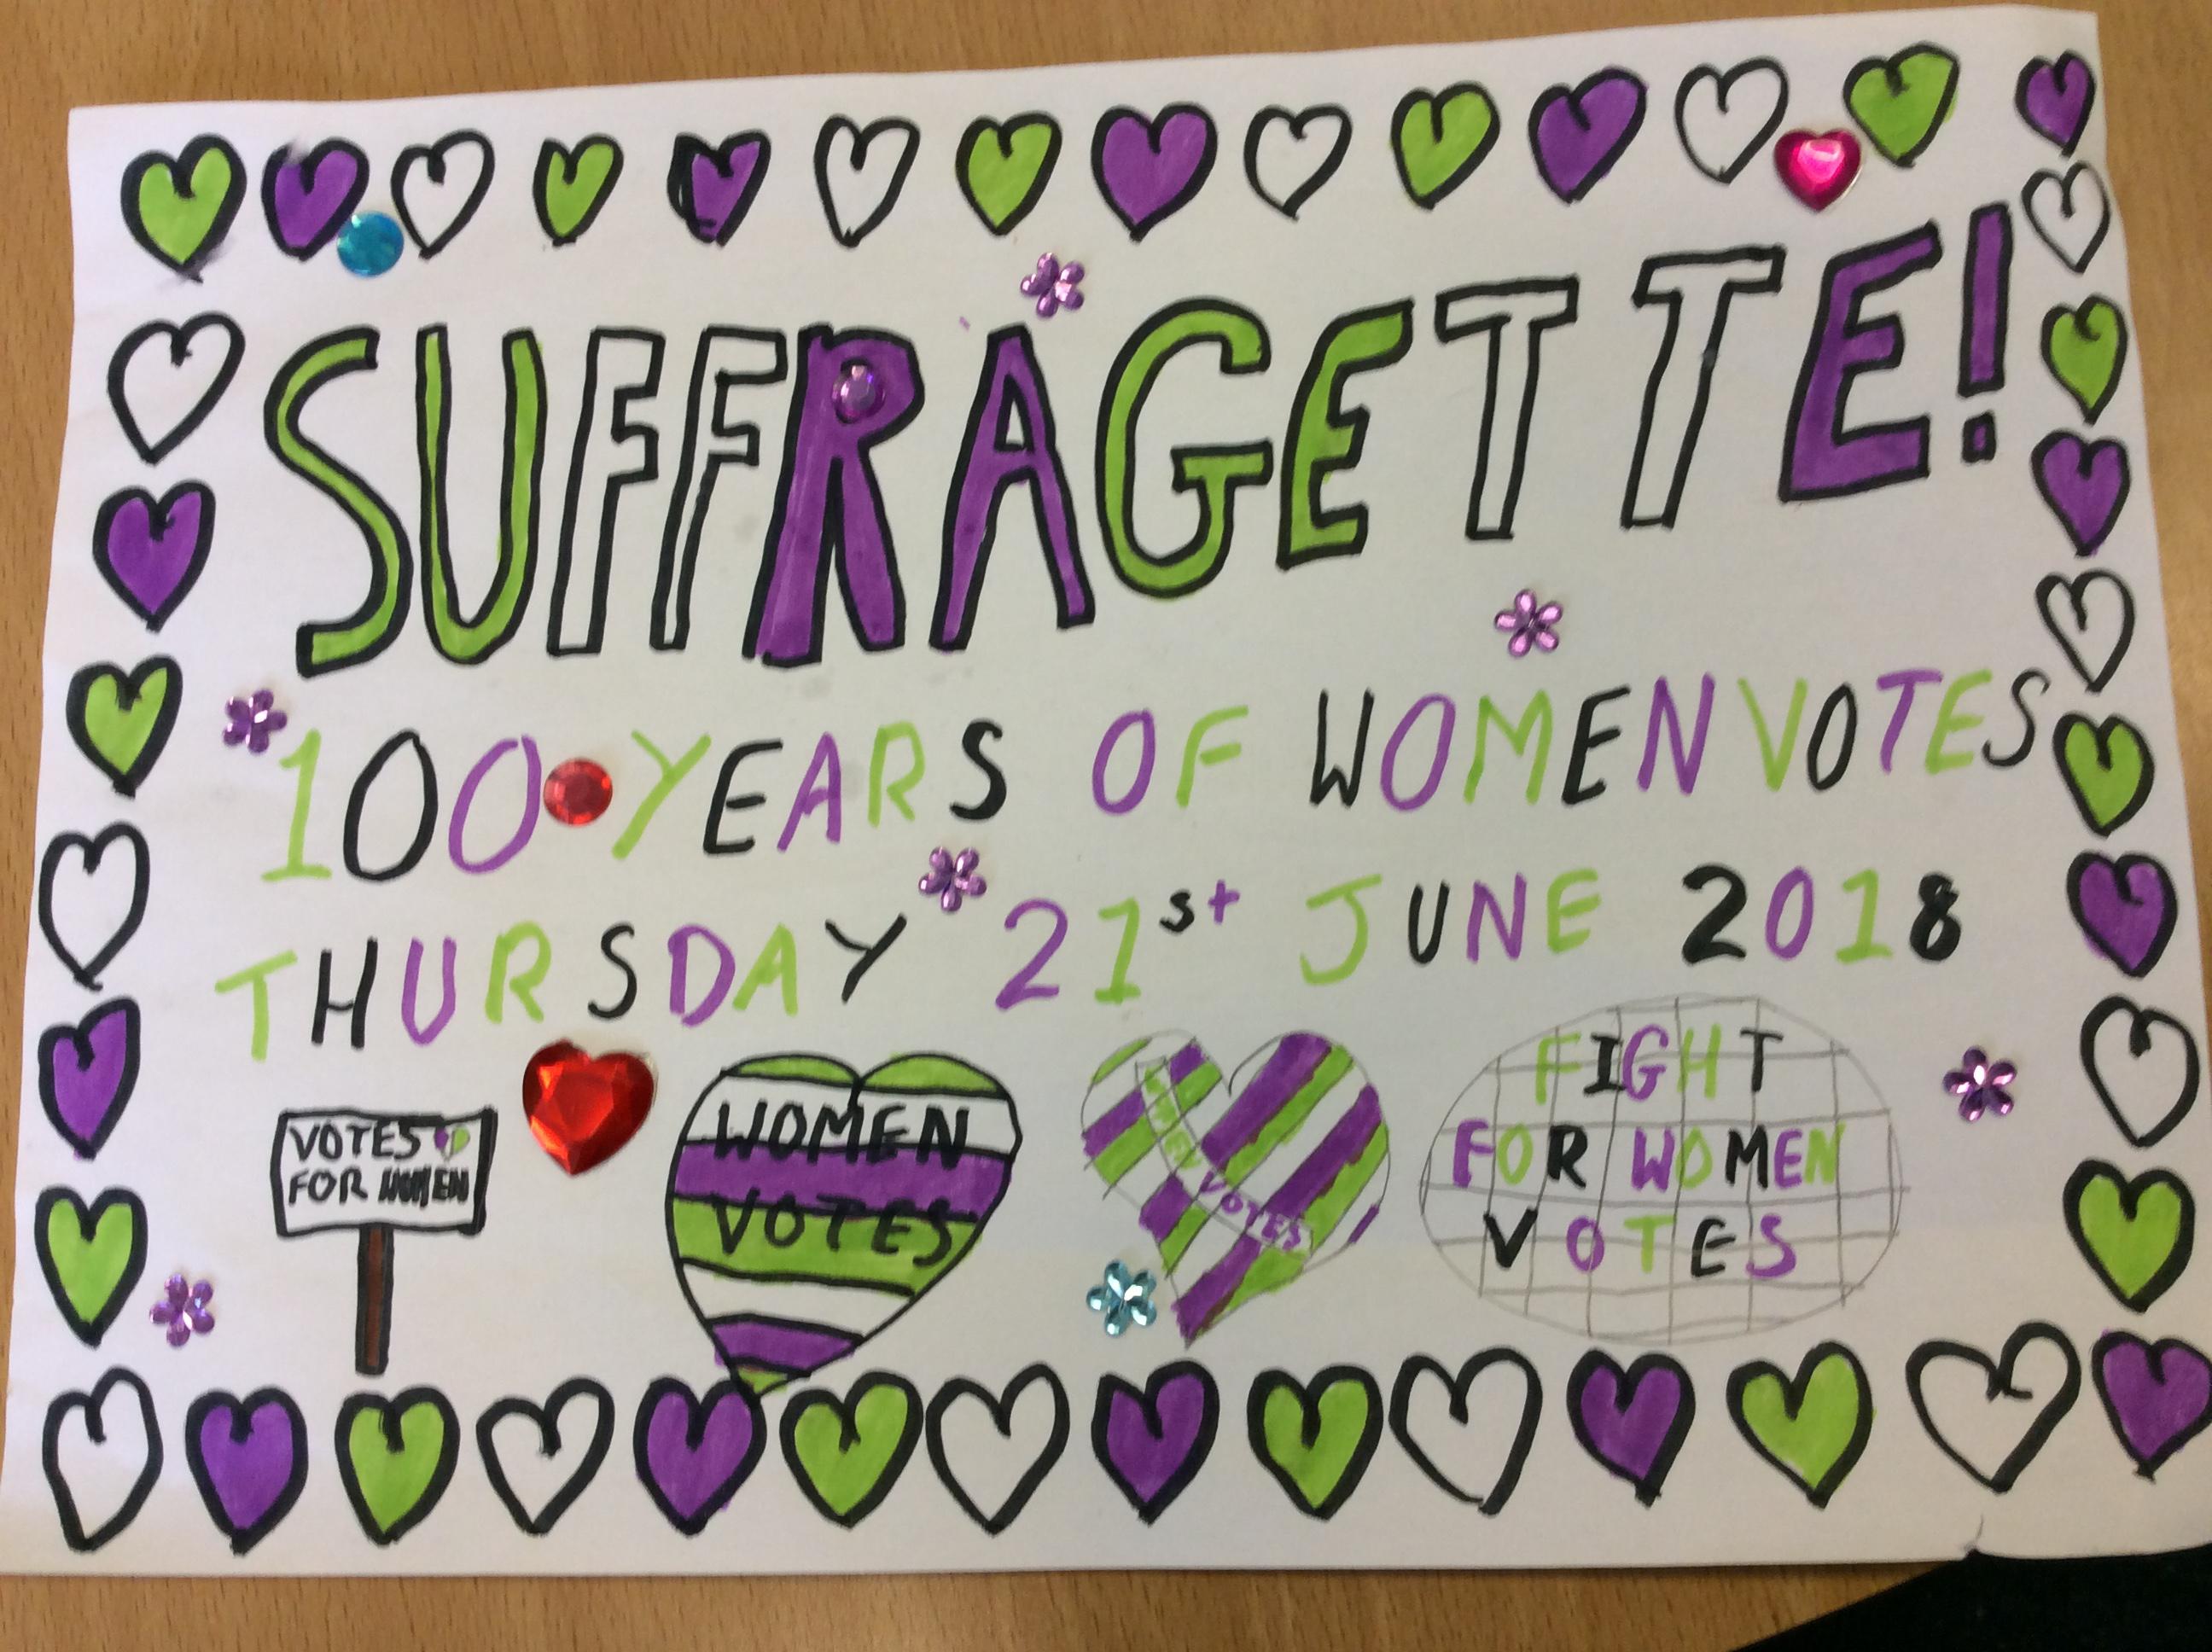 SUFFRAGETTE!
100 YEARS OF WOMEN VOTES
THURSDAY 21st JUNE 2018
VOTES
FOR WOMEN
WOMEN
VOTES
WOMEN VOTES
FIGHT
FOR WOMEN
VOTES